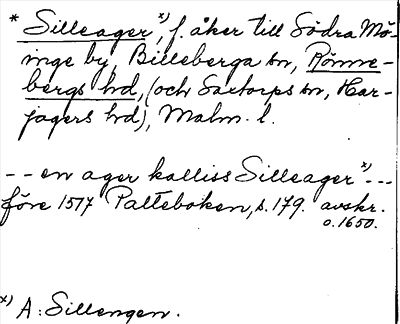 * Silleager, x) f. åker till Södra Mö-
inge by, Billeberga sn, Rönne-
bergs hd, (och Saxtorps sn, Har-
jagers hd), Malm. l.
-- en ager kalliss Silleager x) ---
före 1577 Palteboken, s. 179. avskr.
o. 1650.
x) A: Sillengen.